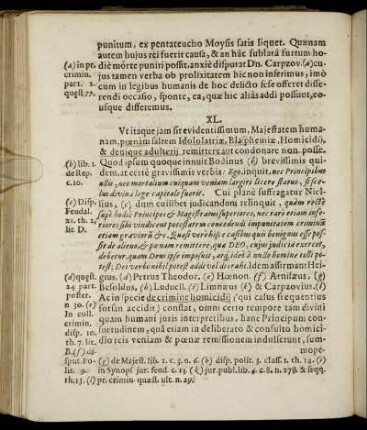 punitum, ex pentateucho Moysis satis liquet. Quænam
autem hujus rei fuerit causa, & an hâc sublatâ furtum ho-
(a) in pt. diè morte puniri possit, anxiè disputat Dn. Carpzov. (a) cu-
crimin. jus tamen verba ob prolixitatem hic non inserimus, imò
part. 2. cum in legibus humanis de hoc delicto sese offeret disse-
quæst. 77. rendi occasio, sponte, ea, quæ hic aliàs addi possint, eo-
usque differemus.
XL.
Ut itaque jam sit evidentissimum, Majestatem huma-
nam, pœnam saltem Idololatriæ, Blasphemiæ, Homicidii,
& denique adulterii remittere aut condonare non posse.
(b) lib. 1. Quod ipsum quoque innuit Bodinus (b) brevissimis qui-
de Rep. dem, at certè gravissimis verbis. Ergo, inquit, nec Principibus
c. 10. ullis, nec mortalium cuiquam veniam largiri licere statuo, si sce-
lus divina lege capitale fuerit. Cui planè suffragatur Niel-
(c) Disp. lius, (c) dum cuilibet judicandum relinquit, quàm rectè
Feudal. sapè hodie Principes & Magistratus superiores, nec rarò etiam infe-
xi. th. 2. riores sibi vindicent potestatem concedendi impunitatem criminū
lit D. etiam graviorū &c. Quasi verbis
sit de alieno, & pœnam remittere, qua DEO, cujus judicia exercet,
debetur, quam Deus ipse imposuit, atq; ideò à nullo homine tolli po-
test; Dei verbo nihil potest addi vel detrahi. Idem assirmant Hei-
(d) quæst. gius. (d) Petrus Theodor, (e) Hœnon. (f) Arnisæus, (g)
24. part Besoldus, (h) Luduell. (i) Limnæus (k) & Carpzovius. (l)
poster. Ac in specie de crimine homicidij (qui casus frequentius
n 30. (e) forsan accidit) constat, omni certo tempore tam divini
In coll. quam humani juris interpretibus, hanc Principum con-
crimin. suetudinem, quâ etiam in deliberato & consulto homici-
disp. 10. dio reis veniam & pœnæ remissionem indulserunt, sum-
th. 7. lit. mopè-
B. (f) di-
sput. Po- (g) de Majest. lib. 2. c. 3. n. 6. (h) disp. polit. 3. class. 1. th. 24. (i)
lit. 9. in Synops jur. feud. c. 13. (k) jur. publ. lib. 4. c. 8. n. 278. & seqq.
th. 13. (l) pt. crimin. quæst. ult. n. 29.